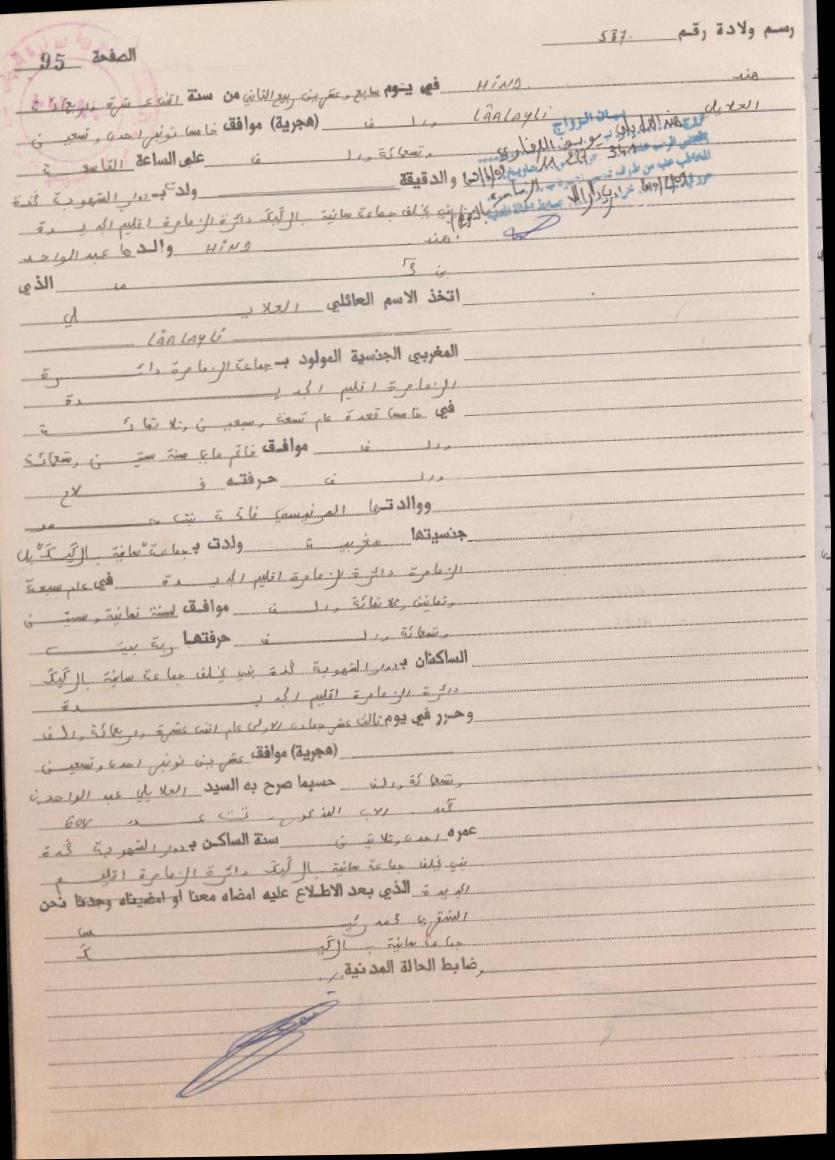 رسم ولادة رقم 537
الصفحة 95
هند HIND في يوم سابع وعشرين ربيع الثاني من سنة اثنى عشرة واربعمائة
العلايلي LAALAYLI والف (هجرية) موافق خامس نونبر احدى وتسعين
بيان الزواج
وتسعمائة والف على الساعة التاسعة
والدقيقة ولدت بـ دوار الشهوبة فخدة
بني يخلف جماعة سانية بالرگيگ دائرة الزمامرة اقليم الجديدة
هند HIND والدها عبد الواحد
بن محمد الذي
اتخذ الاسم العائلي العلايلي
LAALAYLI
المغربي الجنسية المولود بـ جماعة الزمامرة دائرة
الزمامرة اقليم الجديدة
في خامس قعدة عام تسعة وسبعين وثلاثمائة
والف موافق فاتح ماي سنة ستين وتسعمائة
والف حرفته فلاح
ووالدتها فاتحة بنت محمد
جنسيتها مغربية ولدت بـ جماعة سانية بالرگيگ
الزمامرة دائرة الزمامرة اقليم الجديدة في عام سبعة
وثمانين وثلاثمائة والف موافق لسنة ثمانية وستين
وتسعمائة والف حرفتها ربة بيت
الساكنان بـ دوار الشهوبة فخدة بني يخلف جماعة سانية بالرگيگ
دائرة الزمامرة اقليم الجديدة
وحرر في يوم ثالث عشر جمادى الاولى عام اثنى عشرة واربعمائة والف
(هجرية) موافق عشرين نونبر احدى وتسعين
وتسعمائة والف حسبما صرح به السيد العلايلي عبد الواحد بن
محمد الاب المذكور تحت عدد
عمره احدى وثلاثين سنة الساكن بـ دوار الشهوبة فخدة
بني يخلف جماعة سانية بالرگيگ دائرة الزمامرة اقليم
الجديدة الذي بعد الاطلاع عليه امضاه معنا او امضيناه وحدنا نحن
محمد رئيس
جماعة سانية بالرگيگ
ضابط الحالة المدنية